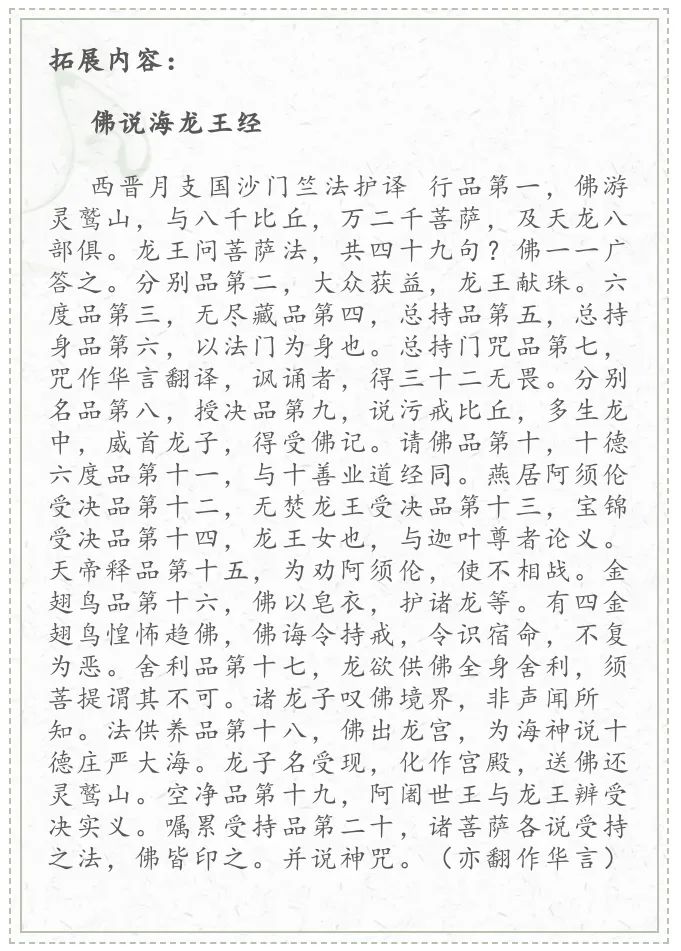 拓展内容：
佛说海龙王经
西晋月支国沙门竺法护译 行品第一，佛游
灵鹫山，与八千比丘，万二千菩萨，及天龙八
部俱。龙王问菩萨法，共四十九句？佛一一广
答之。分别品第二，大众获益，龙王献珠。六
度品第三，无尽藏品第四，总持品第五，总持
身品第六，以法门为身也。总持门咒品第七，
咒作华言翻译，讽诵者，得三十二无畏。分别
名品第八，授决品第九，说污戒比丘，多生龙
中，威首龙子，得受佛记。请佛品第十，十德
六度品第十一，与十善业道经同。燕居阿须伦
受决品第十二，无焚龙王受决品第十三，宝锦
受决品第十四，龙王女也，与迦叶尊者论义。
天帝释品第十五，为劝阿须伦，使不相战。金
翅鸟品第十六，佛以皂衣，护诸龙等。有四金
翅鸟惶怖趋佛，佛诲令持戒，令识宿命，不复
为恶。舍利品第十七，龙欲供佛全身舍利，须
菩提谓其不可。诸龙子叹佛境界，非声闻所
知。法供养品第十八，佛出龙宫，为海神说十
德庄严大海。龙子名受现，化作宫殿，送佛还
灵鹫山。空净品第十九，阿阇世王与龙王辨受
决实义。嘱累受持品第二十，诸菩萨各说受持
之法，佛皆印之。并说神咒。（亦翻作华言）